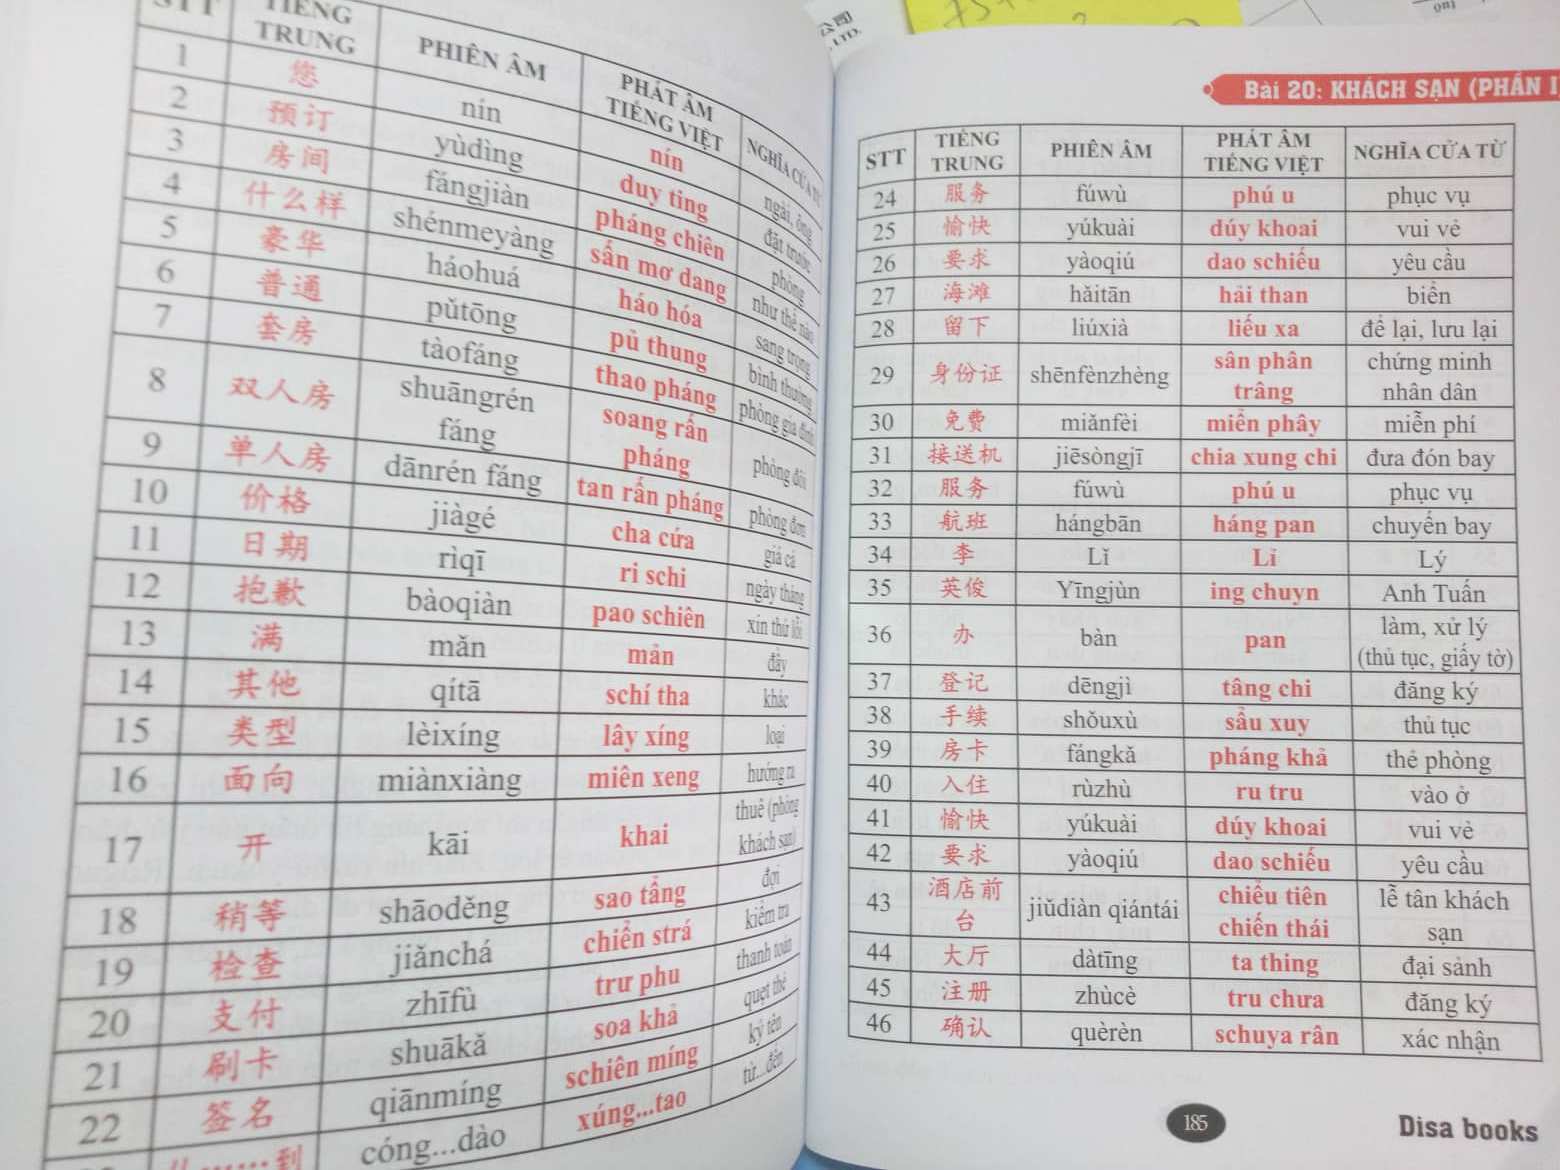 STT TIẾNG TRUNG PHIÊN ÂM PHÁT ÂM TIẾNG VIỆT NGHĨA CỦA TỪ
1 您 nín nín ngài, ông
2 预订 yùdìng duy ting đặt trước
3 房间 fángjiàn pháng chiên phòng
4 什么样 shénmeyàng sấn mơ dang như thế nào
5 豪华 háohuá háo hóa sang trọng
6 普通 pǔtōng pủ thung bình thường
7 套房 tàofáng thao pháng phòng gia đình
8 双人房 shuāngrén fáng soang rấn pháng phòng đôi
9 单人房 dānrén fáng tan rấn pháng phòng đơn
10 价格 jiàgé cha cứa giá cả
11 日期 rìqī ri schi ngày tháng
12 抱歉 bàoqiàn pao schiên xin thứ lỗi
13 满 mǎn mản đầy
14 其他 qítā schí tha khác
15 类型 lèixíng lây xíng loại
16 面向 miànxiàng miên xeng hướng ra
17 开 kāi khai thuê (phòng khách sạn)
18 稍等 shāoděng sao tẩng đợi
19 检查 jiǎnchá chiển strá kiểm tra
20 支付 zhīfù trư phu thanh toán
21 刷卡 shuākǎ soa khả quẹt thẻ
22 签名 qiānmíng schiên míng ký tên
到 cóng...dào xúng...tao từ...đến
公司
LTD.
Bài 20: KHÁCH SẠN (PHẦN I
STT TIẾNG TRUNG PHIÊN ÂM PHÁT ÂM TIẾNG VIỆT NGHĨA CỦA TỪ
24 服务 fúwù phú u phục vụ
25 愉快 yúkuài dúy khoai vui vẻ
26 要求 yàoqiú dao schiếu yêu cầu
27 海滩 hǎitān hải than biển
28 留下 liúxià liếu xa để lại, lưu lại
29 身份证 shēnfènzhèng sân phân trâng chứng minh nhân dân
30 免费 miǎnfèi miển phây miễn phí
31 接送机 jiēsòngjī chia xung chi đưa đón bay
32 服务 fúwù phú u phục vụ
33 航班 hángbān háng pan chuyến bay
34 李 Lǐ Lỉ Lý
35 英俊 Yīngjùn ing chuyn Anh Tuấn
36 办 bàn pan làm, xử lý (thủ tục, giấy tờ)
37 登记 dēngjì tâng chi đăng ký
38 手续 shǒuxù sẩu xuy thủ tục
39 房卡 fángkǎ pháng khả thẻ phòng
40 入住 rùzhù ru tru vào ở
41 愉快 yúkuài dúy khoai vui vẻ
42 要求 yàoqiú dao schiếu yêu cầu
43 酒店前台 jiǔdiàn qiántái chiểu tiên chiến thái lễ tân khách sạn
44 大厅 dàtīng ta thing đại sảnh
45 注册 zhùcè tru chưa đăng ký
46 确认 quèrèn schuya rân xác nhận
185
Disa books